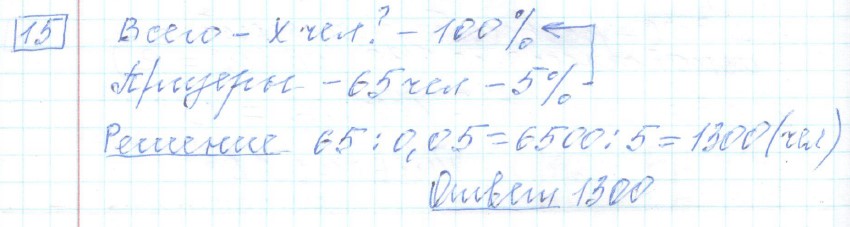 15 Всего - х чел? - 100%
Призеры - 65 чел - 5%
Решение 65 : 0,05 = 6500 : 5 = 1300 (чел)
Ответ 1300